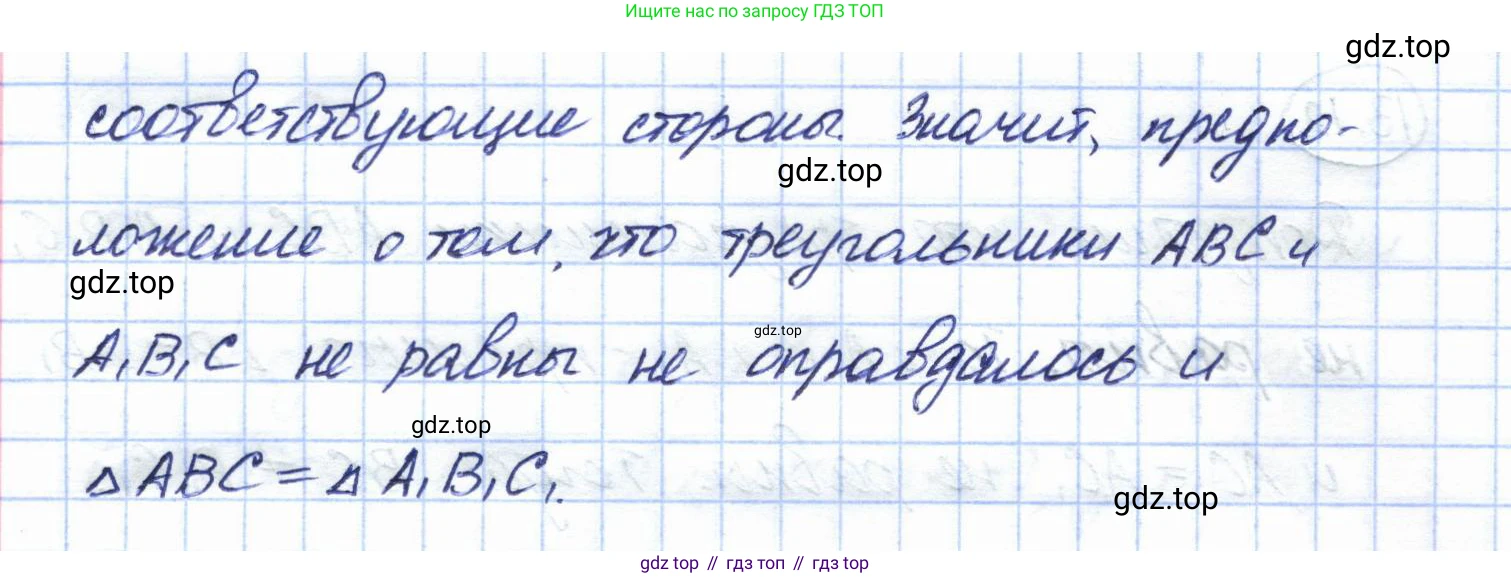 Ищите нас по запросу ГДЗ ТОП
gdz.top
соответствующие стороны. Значит, предпо-
gdz.top
ложение о том, что треугольники ABC и
gdz.top
gdz.top
A₁B₁C не равны не оправдалось и
gdz.top
△ ABC = △ A₁B₁C₁.
gdz.top
gdz.top // гдз топ // гдз.top